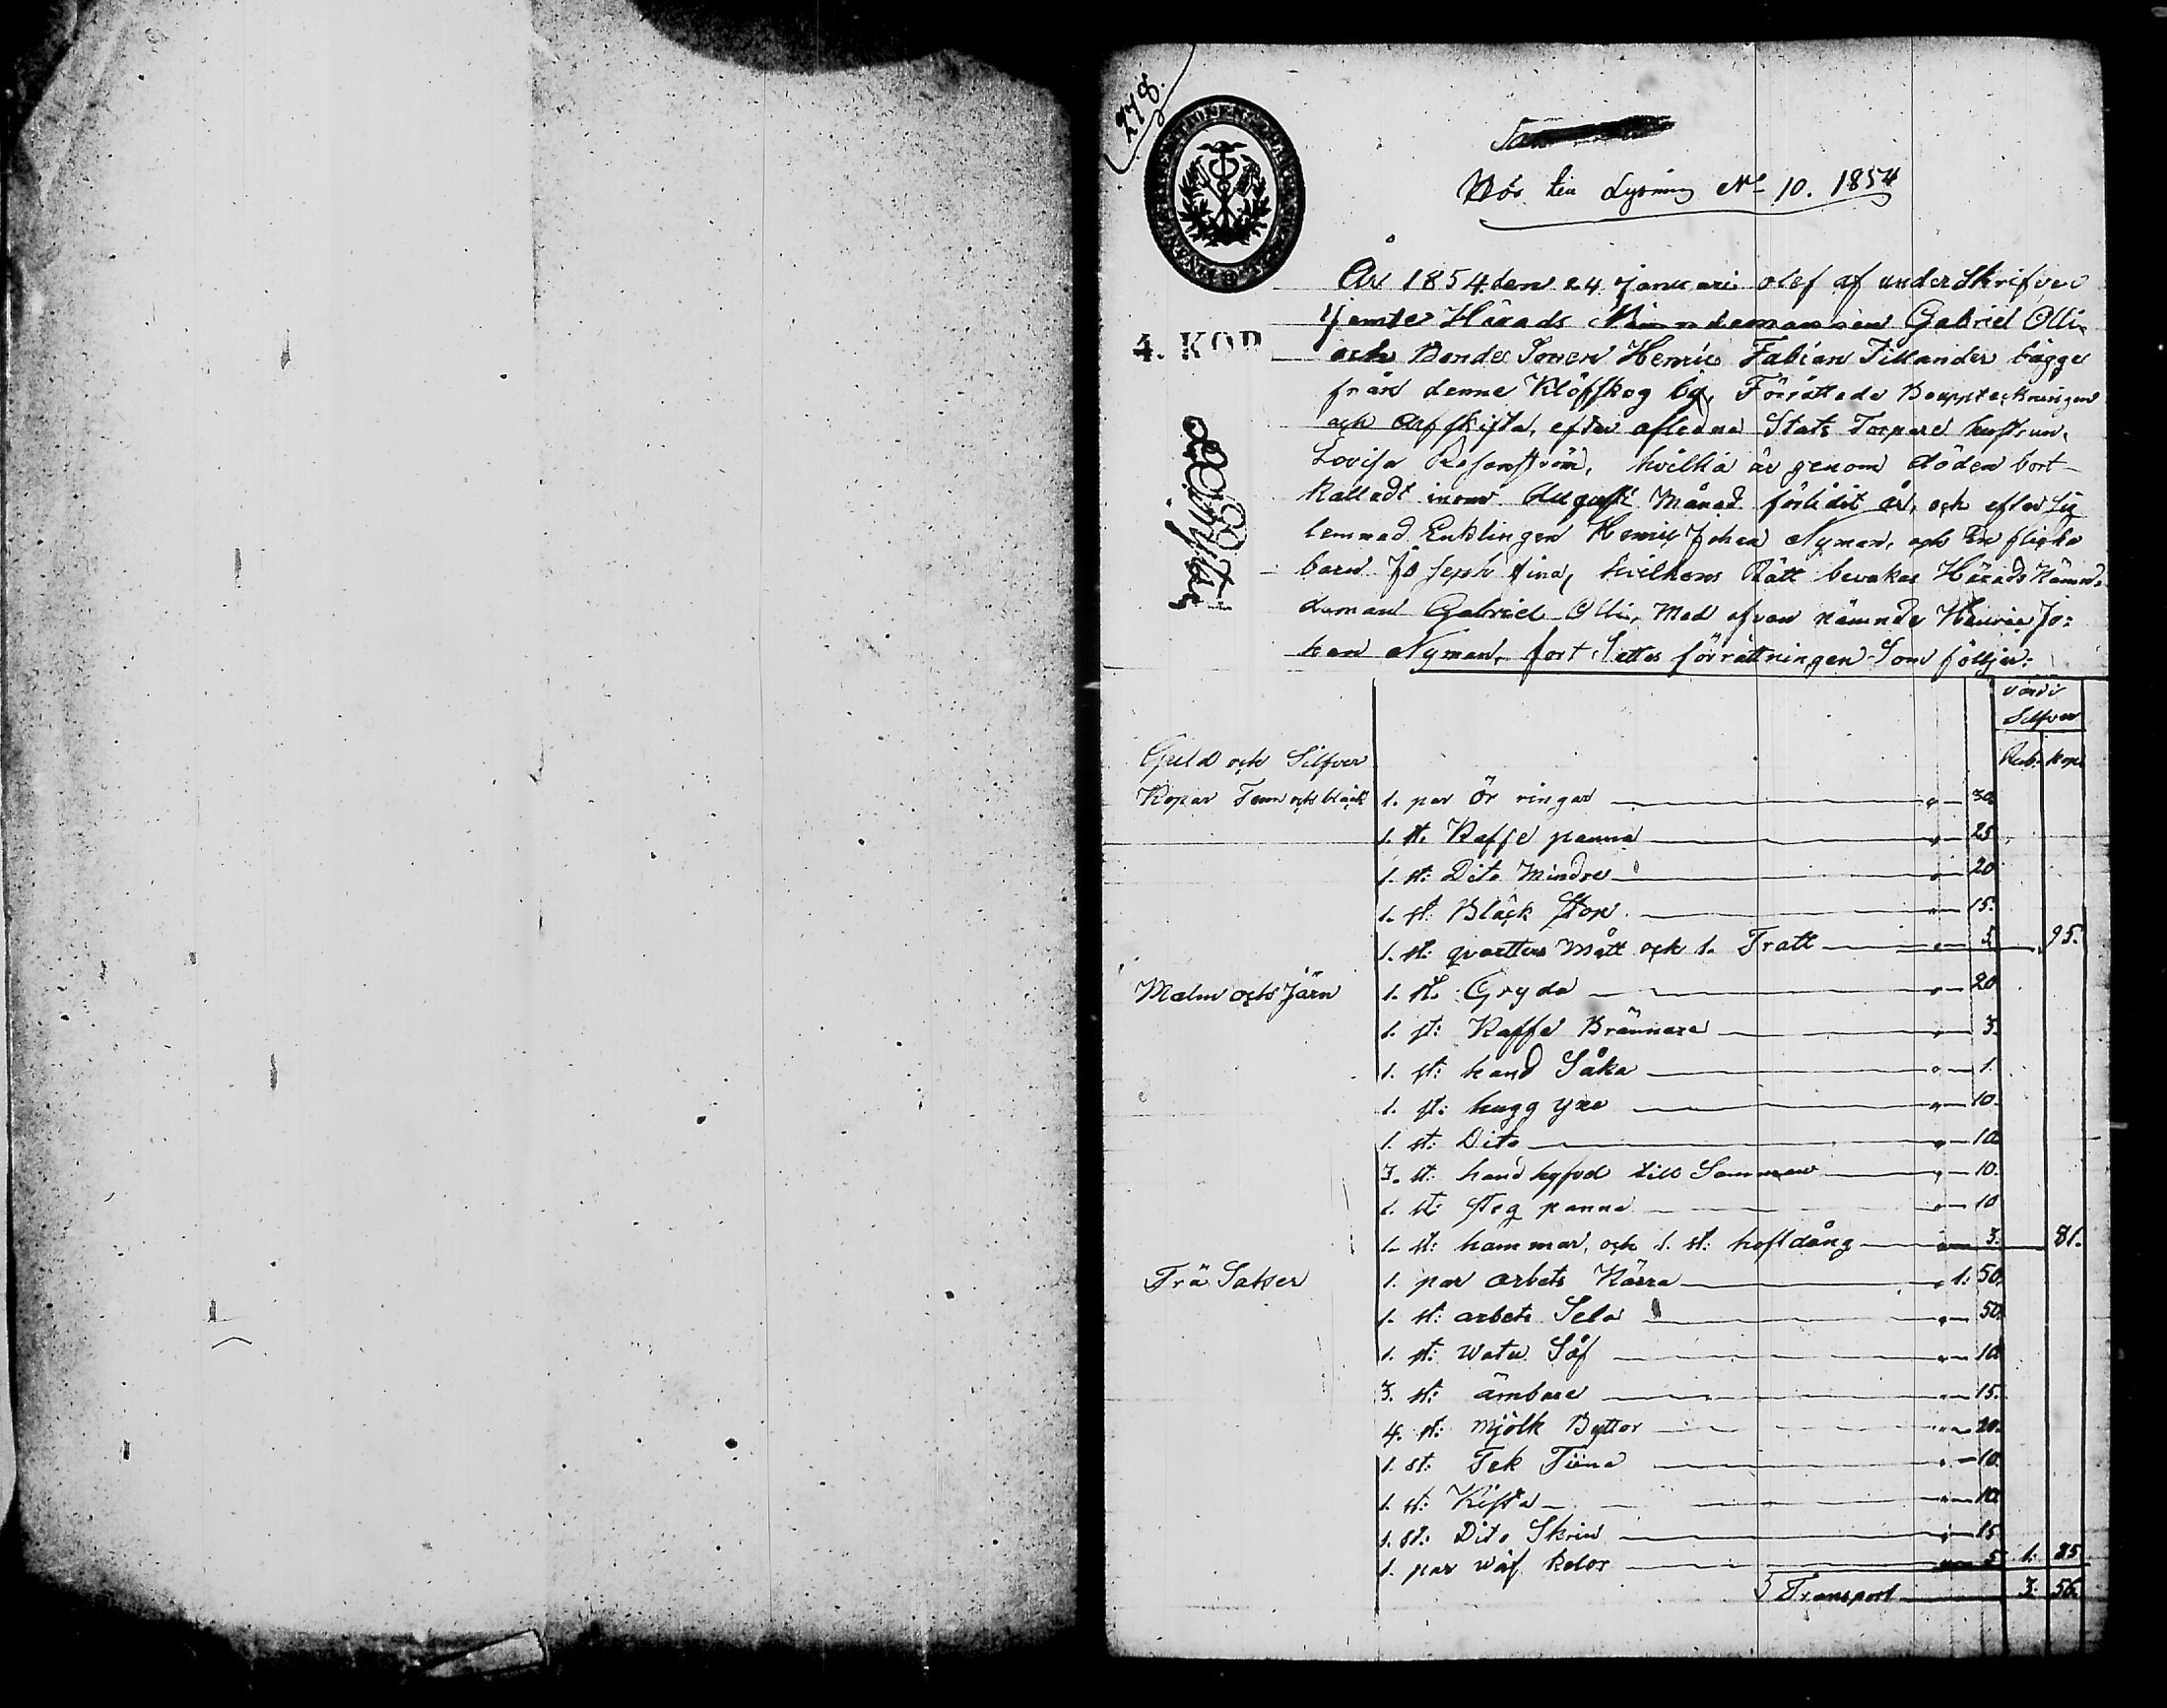 278.
Hör till Lysning No 10. 1854
4. KOP.
År 1854 den 24 Januari blef af underskrifven
jemte Härads Nämndemannen Gabriel Olli
och Bonde Sonen Henric Fabian Tillander bägge
från denne Klöfskog by, Förrättade Bouppteckningen
och Arfskifta, efter afledna Stats Torpare hustrun,
Lovisa Rosenström, hvilka är genom döden bort-
kalladt inom Augusti Månad förlidit år, och efter sig
lemnad Enklingen Henric Johan Nyman, och En flicka
barn Josephina, hvilkens Rätt bevakas Härads Nämnde-
deman Gabriel Olli, Med ofvan nämnde Henric Jo:
han Nyman, fort Settes förrättningen Som följer:
värdi
Silfver
Guld och Silfver Rub. kop.
Kopar Tenn och bläck 1. par ör ringar " 30
1. st. Kaffe panna " 25
1. st: Dito Mindre " 20
1. st: Bläck Stop " 15.
1. st: qvarters Mått och 1. Tratt " 5 95.
Malm och Järn 1. st. Gryda " 20
1. st: Kaffe Brännare " 3.
1. st: hand Såka " 1.
1. st: hugg yxe " 10.
1. st: Dito " 10
3. st: hand till Samman " 10.
1. st: Steg panna " 10
1. st: hammar, och 1. st: hoftång " 3. 81.
Trä Satser 1. par arbets Kärra " 1: 50.
1. st: arbets Sela " 50
1. st: Watu Såf " 10
3. st: ämbare " 15.
4. st: Mjölk Byttor " 20.
1. st: Tek Tiina " 10.
1. st: Kista " 10
1. st: Dito Skrin " 15
1. par wäf kelor " 5 1: 85
Transport 3. 56.